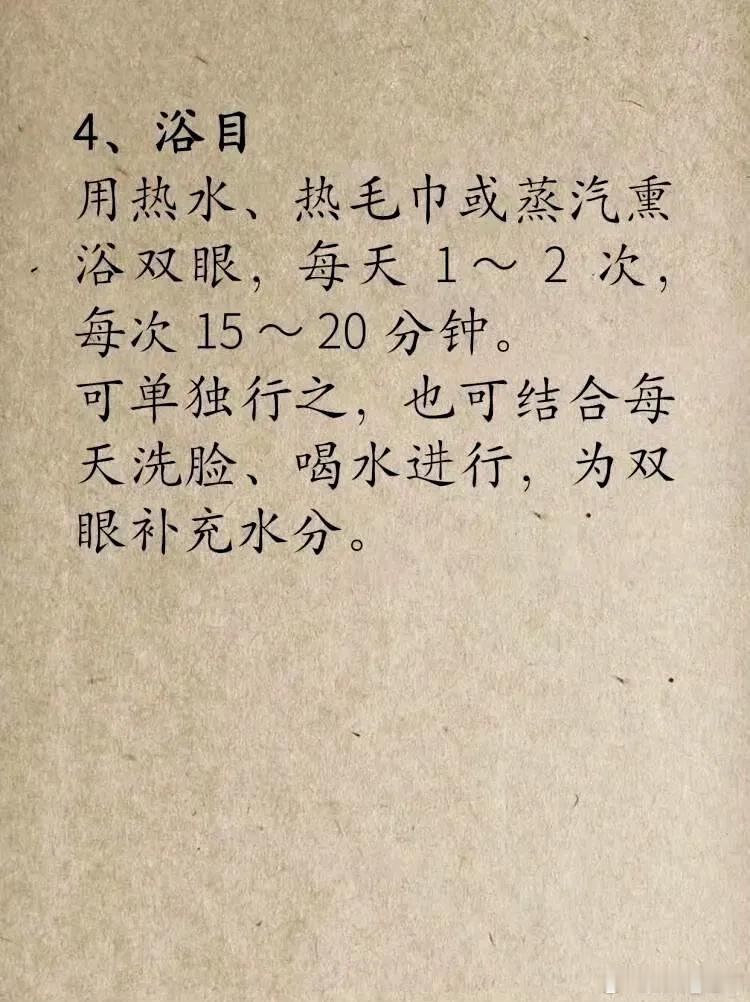 4、浴目
用热水、热毛巾或蒸汽熏
浴双眼，每天 1～ 2 次，
每次 15～20 分钟。
可单独行之，也可结合每
天洗脸、喝水进行，为双
眼补充水分。